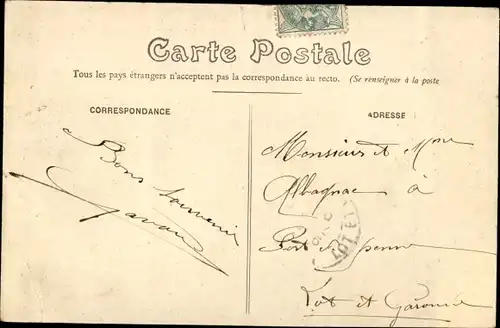 Carte Postale
Tous les pays étrangers n'acceptent pas la correspondance au recto. (Se renseigner à la poste
CORRESPONDANCE
ADRESSE
Bons souvenir
Monsieur et Mme
Albagnac à
Port de penne
Lot et Garonne